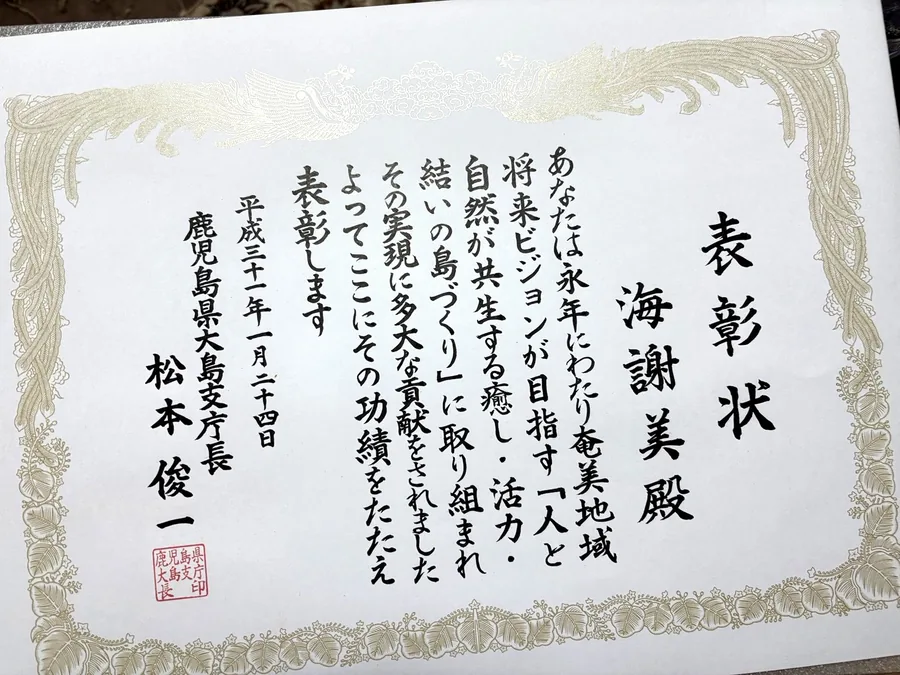 表彰状
海謝美殿
あなたは永年にわたり奄美地域
将来ビジョンが目指す「人と
自然が共生する癒し・活力・
結いの島づくり」に取り組まれ
その実現に多大な貢献をされました
よってここにその功績をたたえ
表彰します
平成三十一年一月二十四日
鹿児島県大島支庁長
松本俊一
鹿児島県
大島支庁
長印